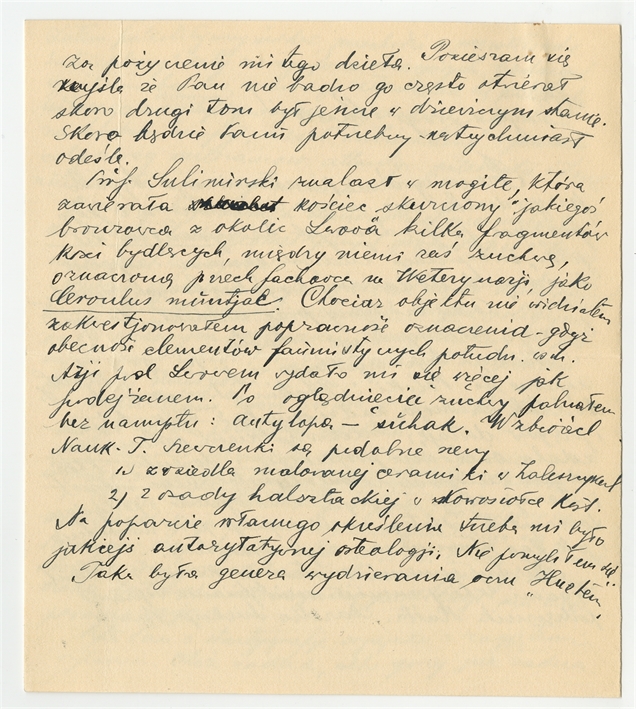 za pożyczenie mi tego dzieła. Pocieszam się
myślą że Pan nie badzo go często otwierał
skoro drugi tom był jeszcze w dziewiczym stanie.
Skoro będzie Panu potrzebny natychmiast
odeślę.
Prof. Sulimirski znalazł w mogile, która
zawierała kościec skurczony "jakiegoś
bronzowca z okolic Lwowa kilka fragmentów
kości bydlęcych, między niemi zaś żuchwę,
oznaczoną przez fachowca na Weterynarji, jako
Cervulus muntjac. Chociaż objektu nie widziałem
zakwestjonowałem poprawność oznaczenia - gdyż
obecność elementów faunistycznych połudn. wsch.
Azji pod Lwowem wydało mi się więcej jak
podejżanem. Po oglądnięciu żuchwy palnąłem
bez namysłu: antylopa - suhak. W zbiorach
Nauk. T. Szewczenki są podobne
1.) z siedla malowanej ceramiki w
2) z osady halsztackiej w Nowosiółce Kąt.
Na poparcie własnego określenia trzeba mi było
jakiejś autorytatywnej osteologji. Nie pomyliłem się
Taka była geneza wydzierania ocm "Hueta".